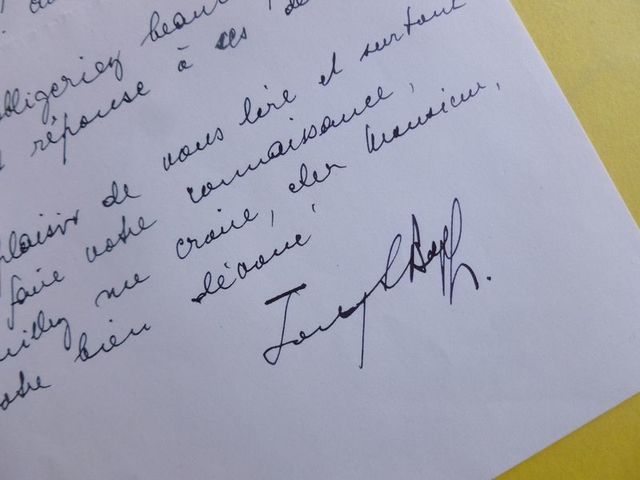 obligeriez beauc
réponse à ces de
plaisir de vous lire et surtout
faire votre connaissance,
me croire, cher Monsieur,
otre bien dévoué